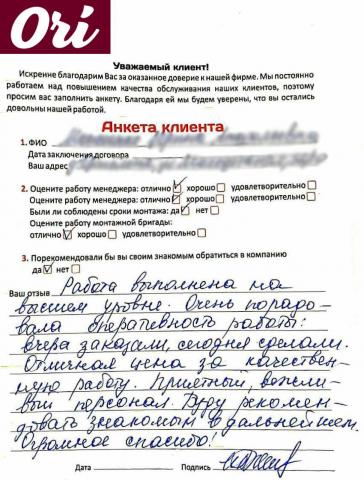 Ori
Уважаемый клиент!
Искренне благодарим Вас за оказанное доверие к нашей фирме. Мы постоянно
работаем над повышением качества обслуживания наших клиентов, поэтому
просим вас заполнить анкету. Благодаря ей мы будем уверены, что вы остались
довольны нашей работой.
Анкета клиента
1. ФИО
Дата заключения договора
Ваш адрес
2. Оцените работу менеджера: отлично хорошо удовлетворительно
Оцените работу менеджера: отлично хорошо удовлетворительно
Были ли соблюдены сроки монтажа: да нет
Оцените работу монтажной бригады:
отлично хорошо удовлетворительно
3. Порекомендовали бы вы своим знакомым обратиться в компанию
да нет
Ваш отзыв Работа выполнена на
высшем уровне. Очень порадо-
вала оперативность работы:
вчера заказали, сегодня сделали.
Отличная цена за качествен-
ную работу. Приятный, вежли-
вый персонал. Буду рекомен-
довать знакомым в дальнейшем.
Огромное спасибо!
Дата Подпись